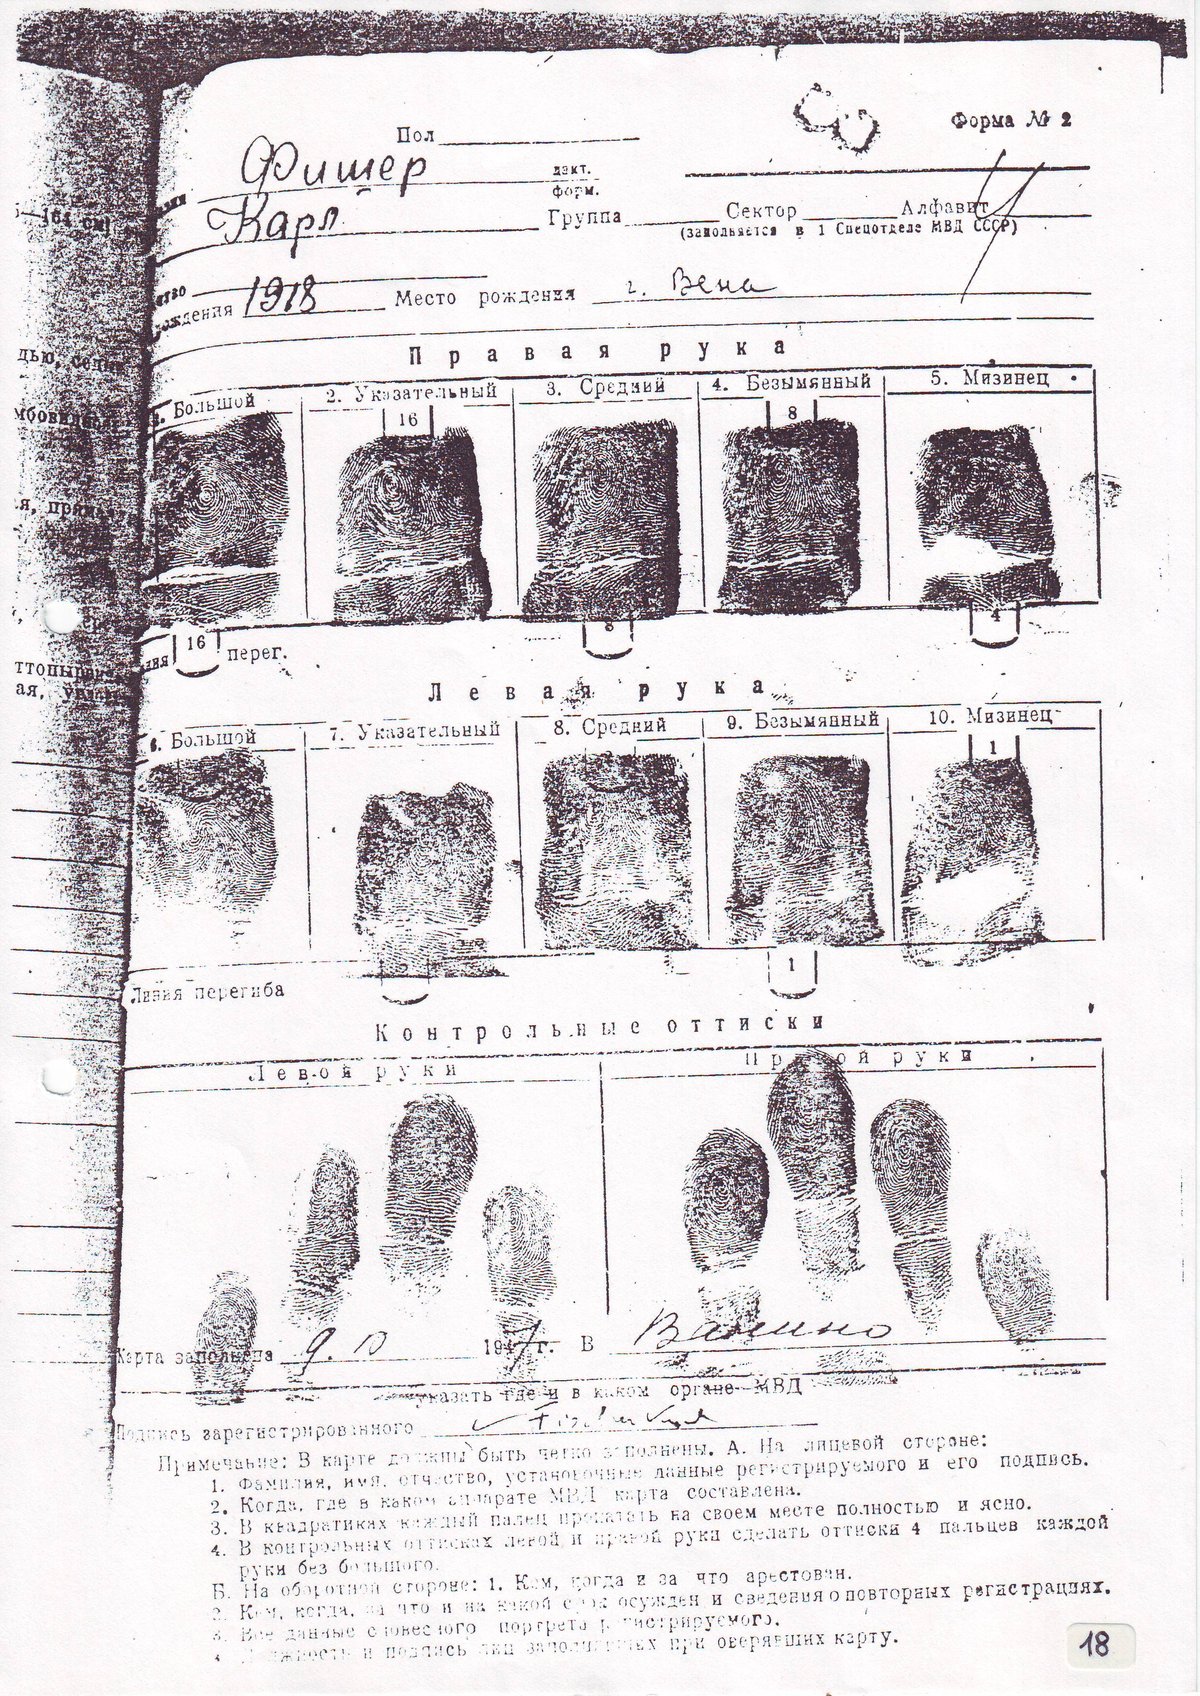 Форма № 2
Пол
Фишер
дакт.
форм.
Карл
Группа Сектор Алфавит
(заполняется в 1 Спецотделе МВД СССР)
1918 Место рождения г. Вена
Правая рука
Большой 2. Указательный 3. Средний 4. Безымянный 5. Мизинец
16 8
16 перег. 8 4
Левая рука
6. Большой 7. Указательный 8. Средний 9. Безымянный 10. Мизинец
1
1
Линия перегиба
Контрольные оттиски
Левой руки Правой руки
Карта заполнена 9. 10 1947 г. В Ванино
указать где и в каком органе МВД
Подпись зарегистрированного Fischer Karl
Примечание: В карте должны быть четко заполнены. А. На лицевой стороне:
1. Фамилия, имя, отчество, установочные данные регистрируемого и его подпись.
2. Когда, где в каком аппарате МВД карта составлена.
3. В квадратиках каждый палец прокатать на своем месте полностью и ясно.
4. В контрольных оттисках левой и правой руки сделать оттиски 4 пальцев каждой
руки без большого.
Б. На оборотной стороне: 1. Кем, когда и за что арестован.
2. Кем, когда, за что и на какой срок осужден и сведения о повторных регистрациях.
3. Все данные словесного портрета регистрируемого.
4. Должность и подпись лиц заполнявших при оверявших карту.
18